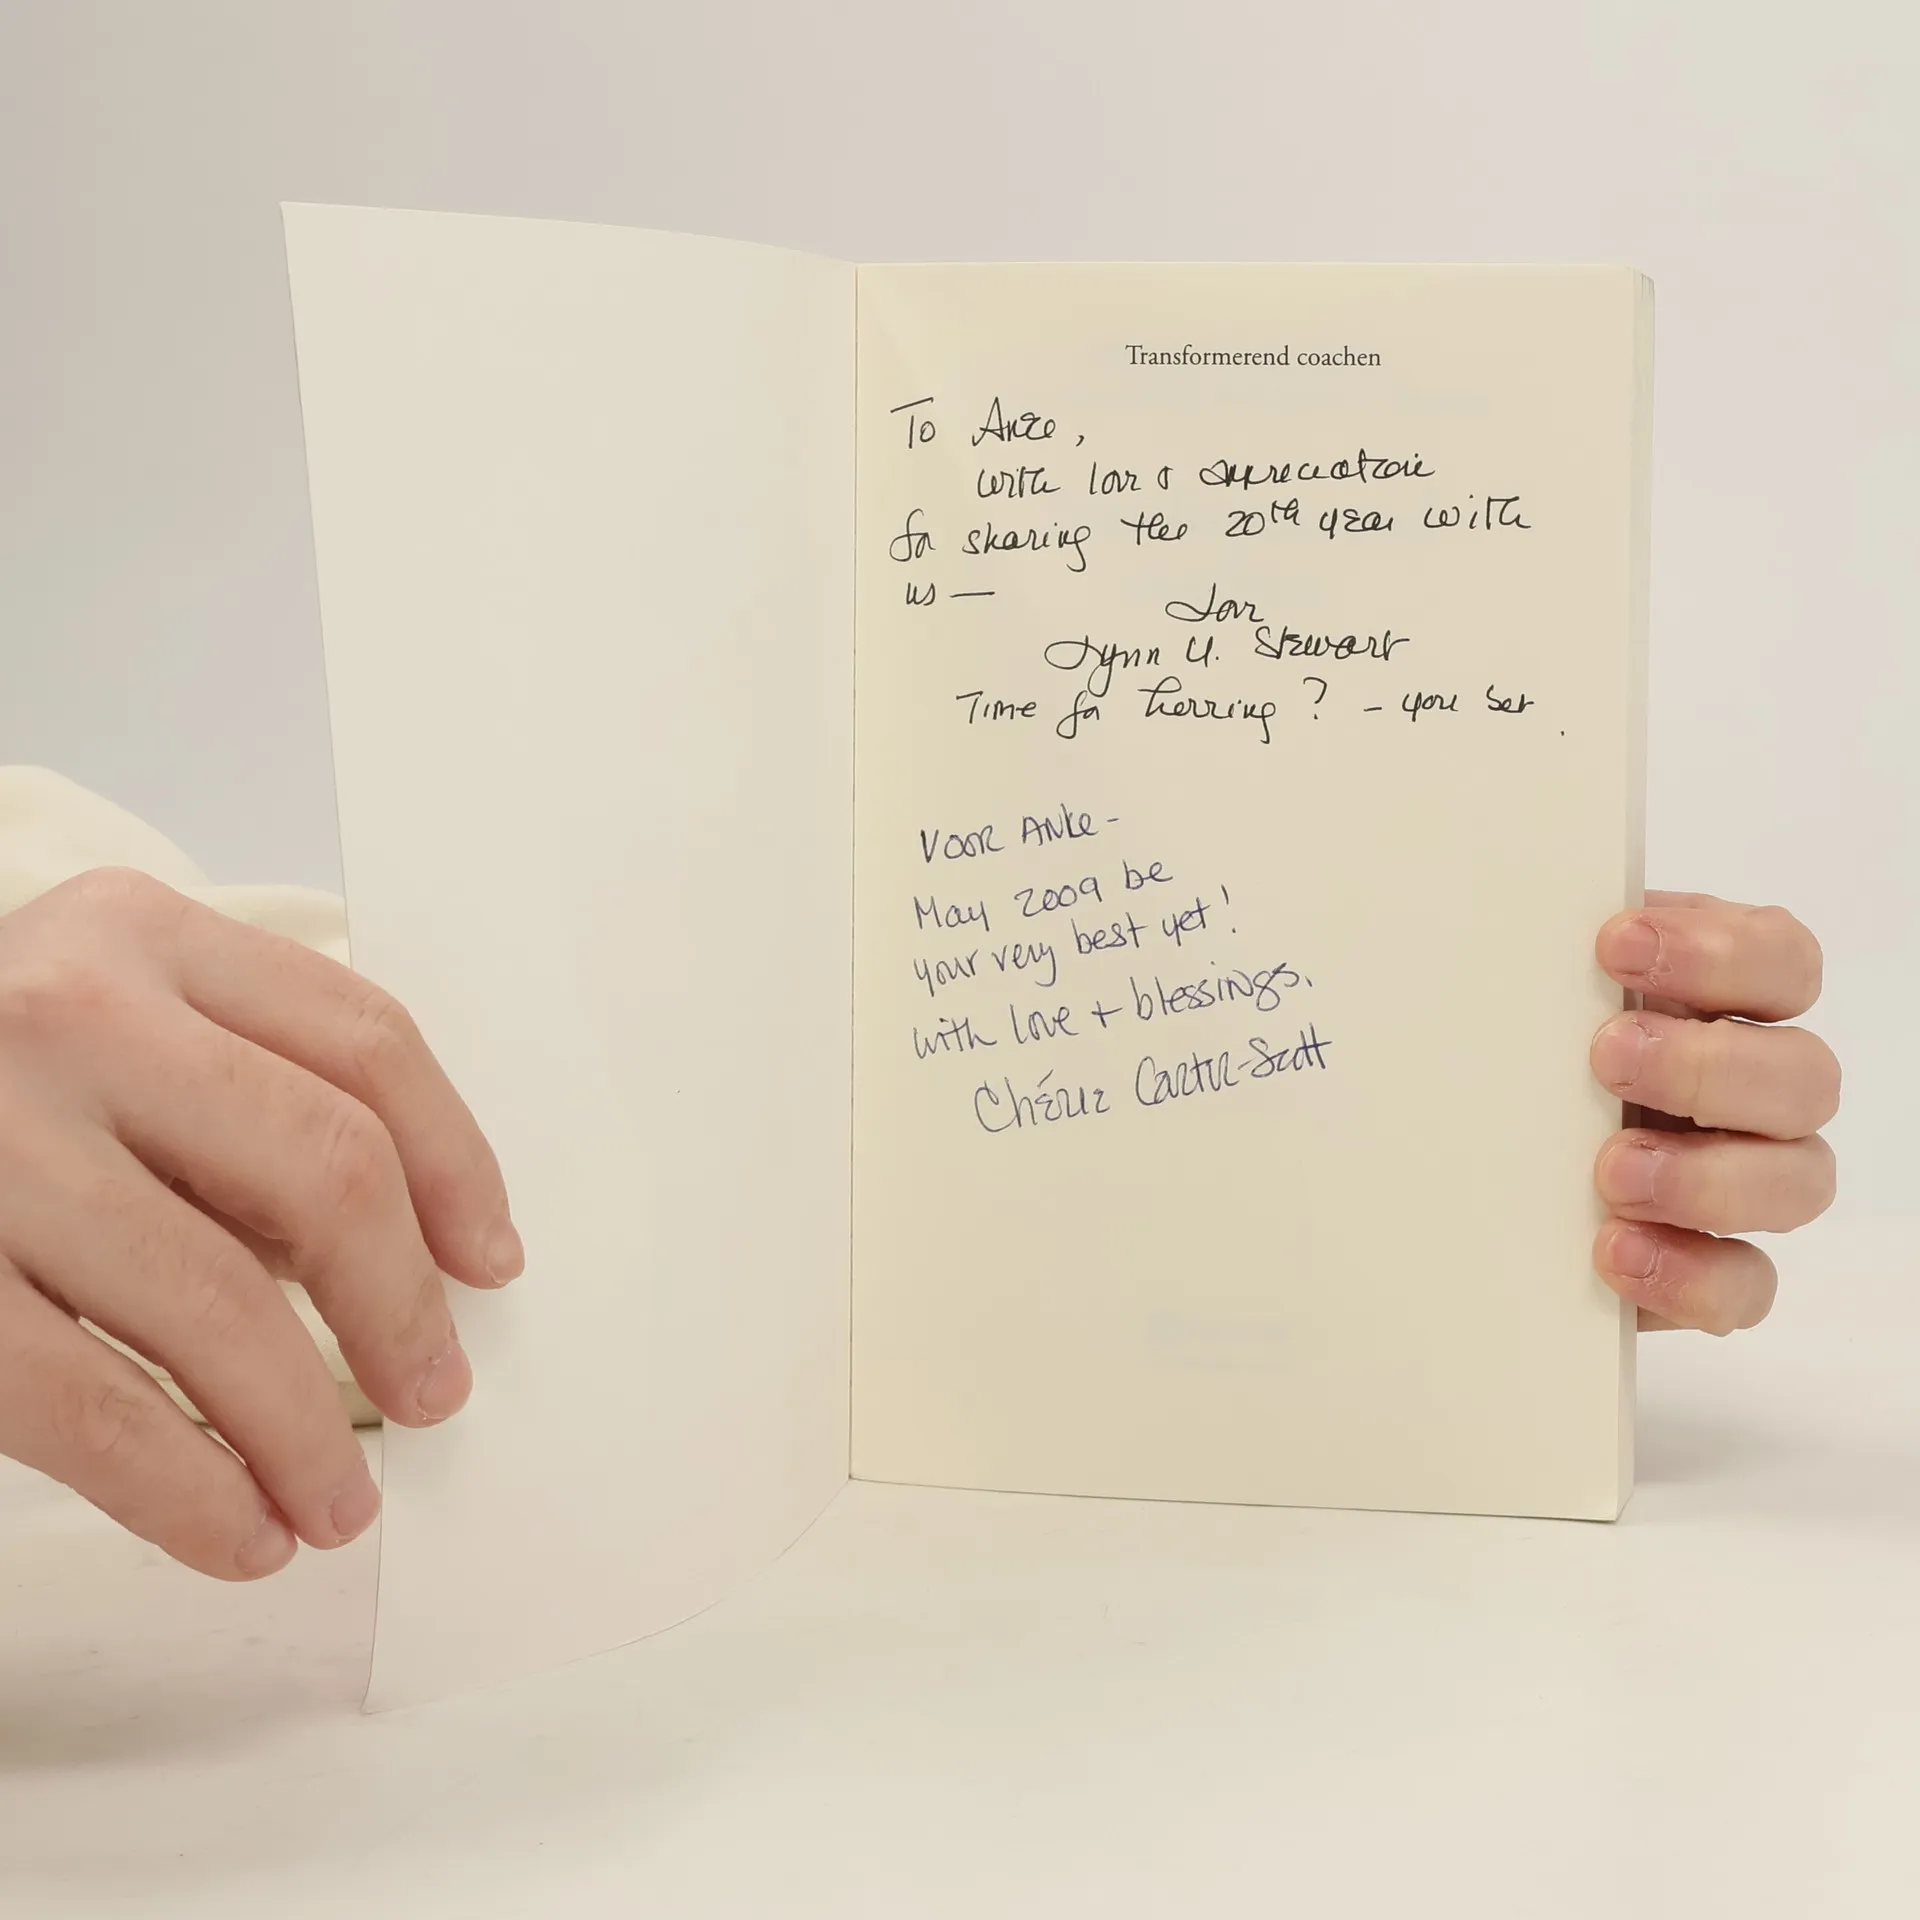 Transformerend coachen
To Anke,
with love & appreciation
for sharing the 20th year with
us —
Love
Lynn U. Stewart
Time for herring? - you bet.
VOOR ANKE -
May 2009 be
your very best yet!
with love + blessings.
Chérie Carter-Scott